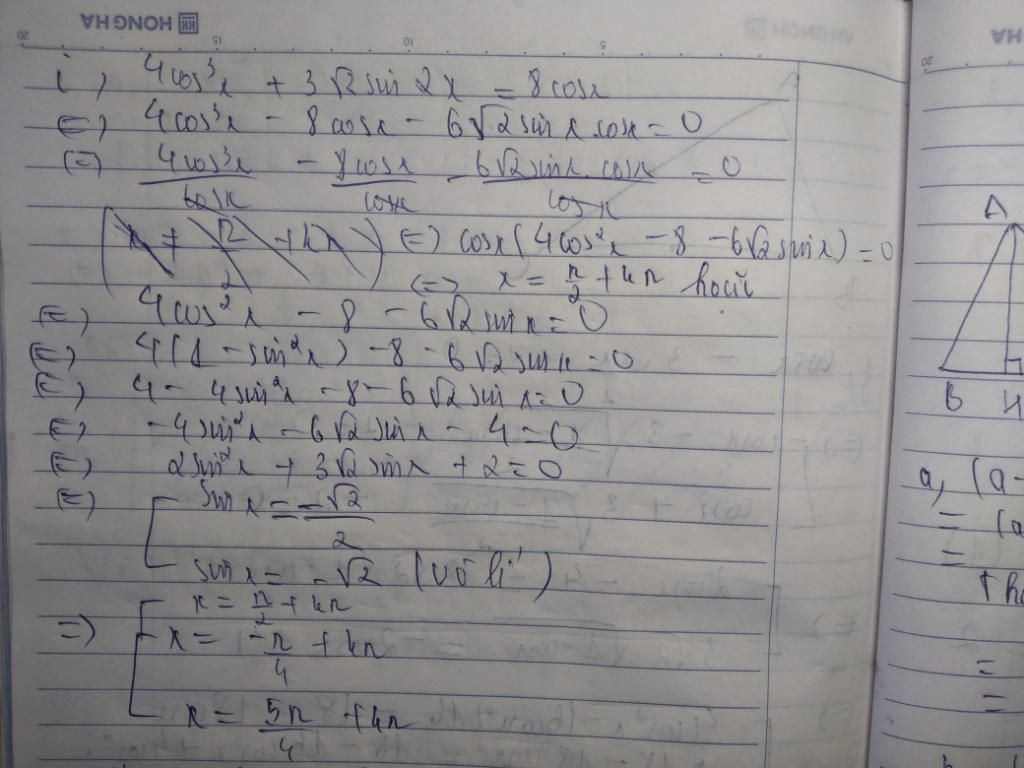 HONG HA
20 15 10 5
i) 4cos³x + 3√2 sin 2x = 8cosx
(=) 4cos³x - 8cosx - 6√2 sin x cosx = 0
(=) 4cos³x/cosx - 8cosx/cosx - 6√2 sinx cosx/cosx = 0
(=) cosx(4cos²x - 8 - 6√2 sin x) = 0
(=) x = π/2 + kπ hoặc
(=) 4cos²x - 8 - 6√2 sin x = 0
(=) 4(1 - sin²x) - 8 - 6√2 sin x = 0
(=) 4 - 4sin²x - 8 - 6√2 sin x = 0
(=) -4sin²x - 6√2 sin x - 4 = 0
(=) 2sin²x + 3√2 sinx + 2 = 0
(=) sin x = -√2/2
sin x = -√2 (vô lí)
x = π/2 + kπ
=) x = -π/4 + kπ
x = 5π/4 + kπ
HA
20
A
B H
a, (a-
= (a
=
=
=